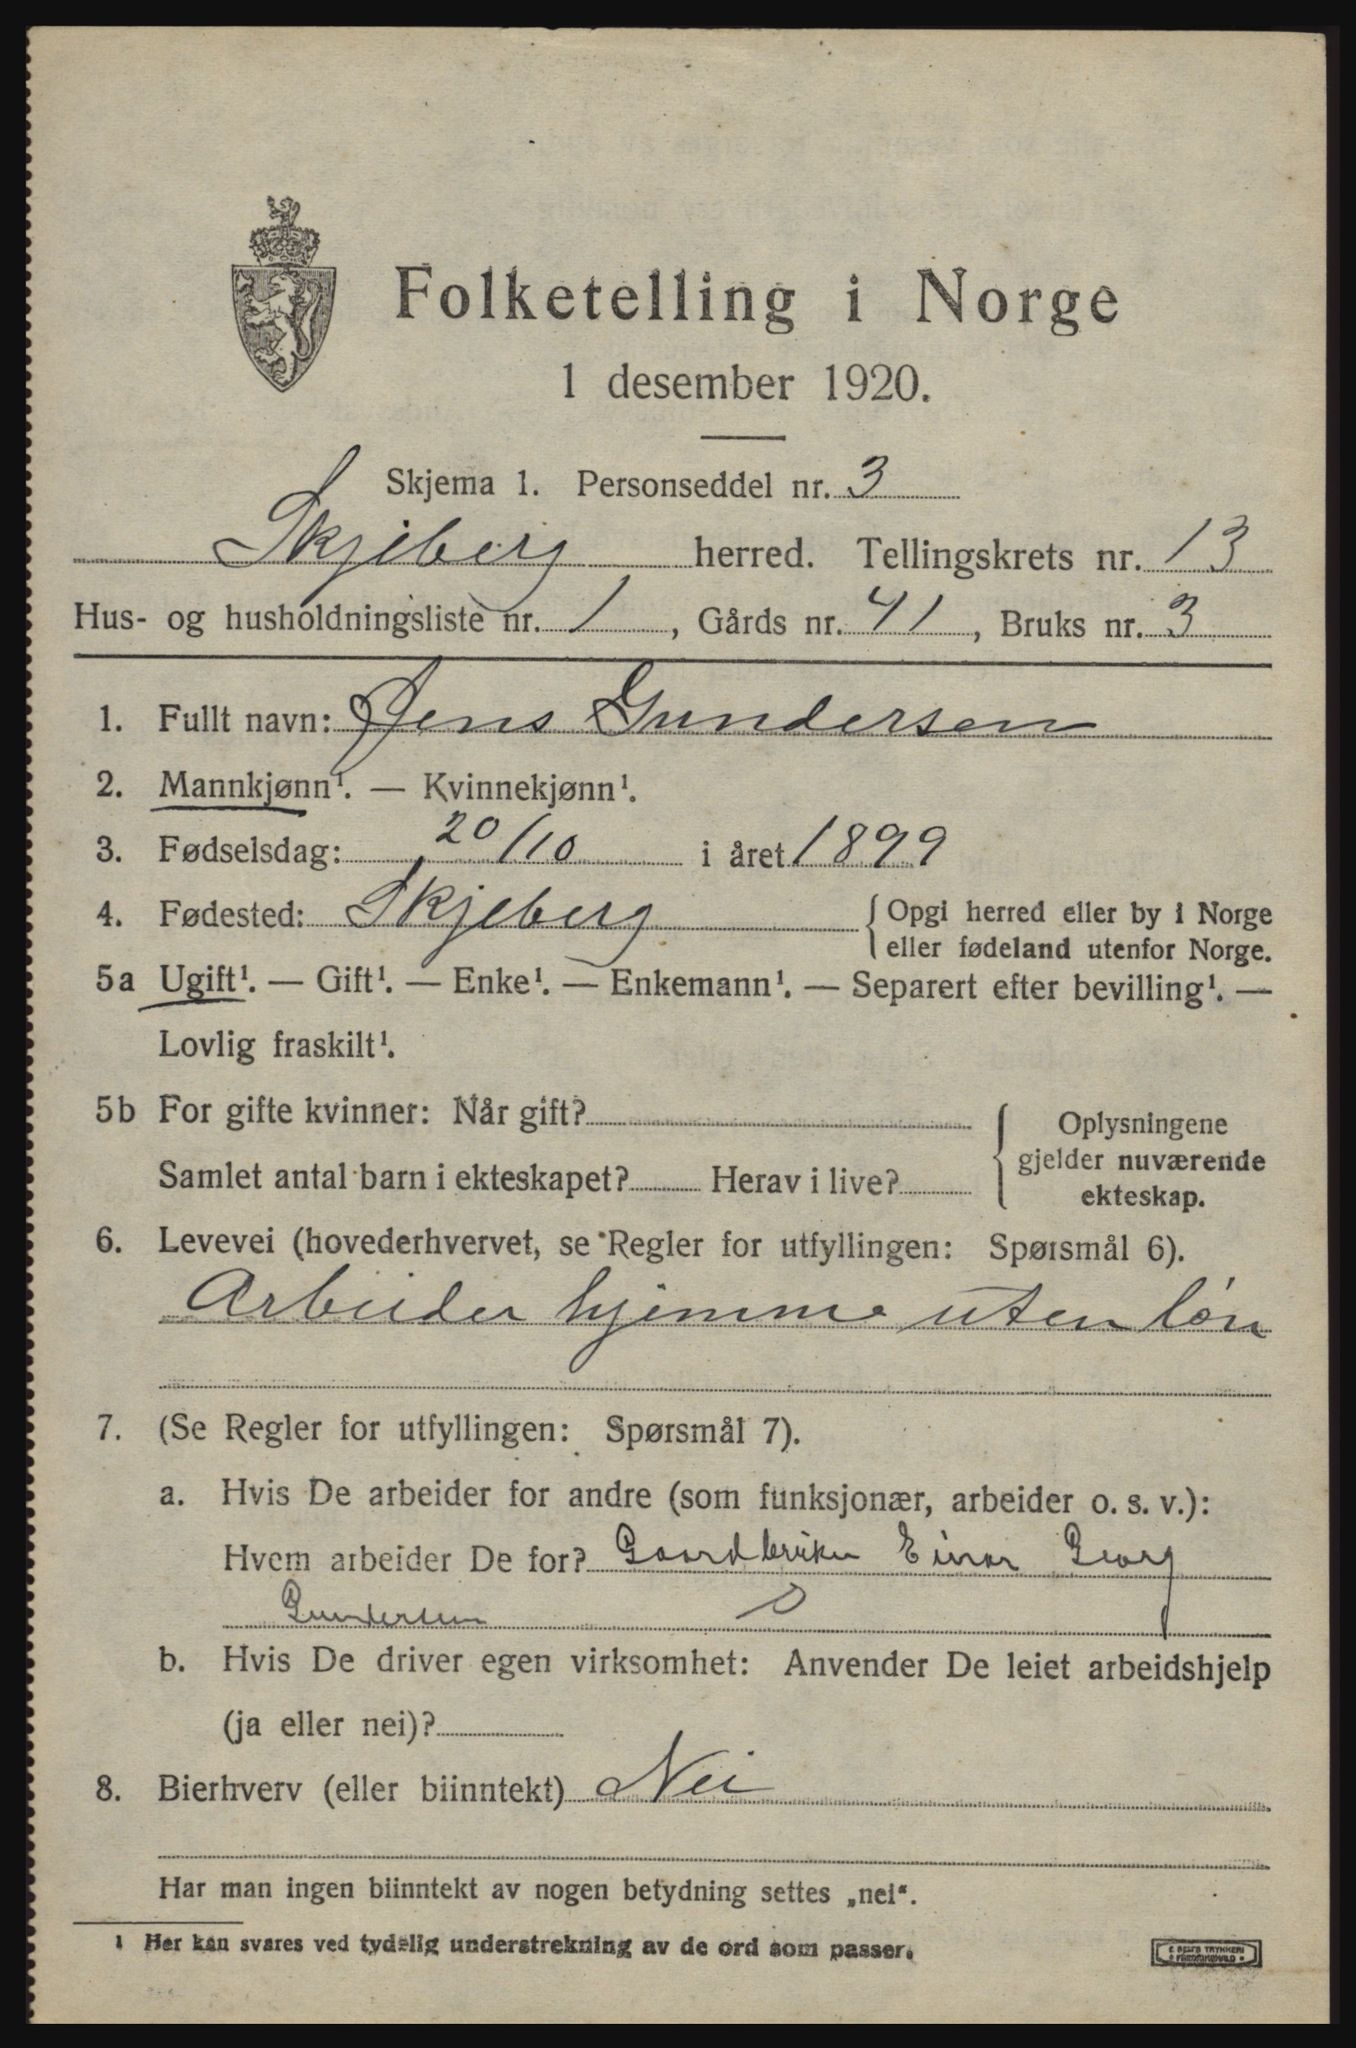 Folketelling i Norge
1 desember 1920.
Skjema 1. Personseddel nr. 3
Skjeberg herred. Tellingskrets nr. 13
Hus- og husholdningsliste nr. 1, Gårds nr. 41, Bruks nr. 3
1. Fullt navn: Jens Gundersen
2. Mannkjønn¹. — Kvinnekjønn¹.
3. Fødselsdag: 20/10 i året 1899
4. Fødested: Skjeberg { Opgi herred eller by i Norge
eller fødeland utenfor Norge.
5a Ugift¹. — Gift¹. — Enke¹. — Enkemann¹. — Separert efter bevilling¹. —
Lovlig fraskilt¹.
5b For gifte kvinner: Når gift? { Oplysningene
gjelder nuværende
Samlet antal barn i ekteskapet? Herav i live?
ekteskap.
6. Levevei (hovederhvervet, se Regler for utfyllingen: Spørsmål 6).
Arbeider hjemme uten løn
7. (Se Regler for utfyllingen: Spørsmål 7).
a. Hvis De arbeider for andre (som funksjonær, arbeider o. s. v.):
Hvem arbeider De for? Gaardbruker Einar Georg
Gundersen
b. Hvis De driver egen virksomhet: Anvender De leiet arbeidshjelp
(ja eller nei)?
8. Bierhverv (eller biinntekt) Nei
Har man ingen biinntekt av nogen betydning settes „nei“.
1 Her kan svares ved tydelig understrekning av de ord som passer.